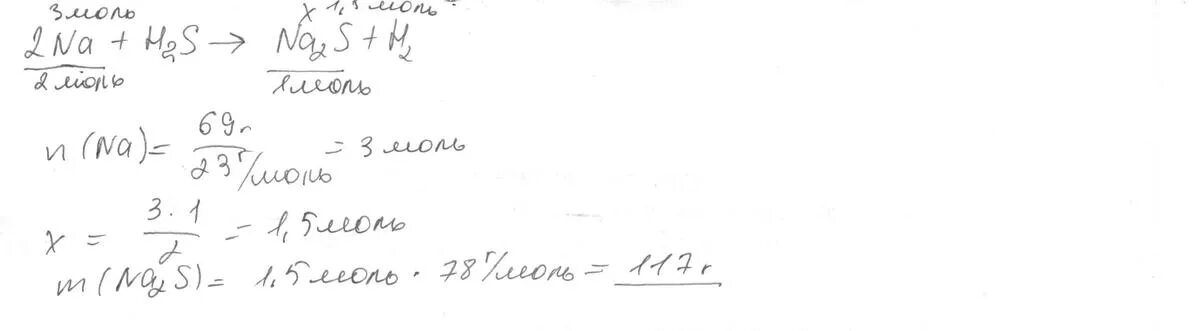 3 моль x 1,5 моль
2Na + H₂S → Na₂S + H₂
2 моль 1 моль
n (Na) = 69г / 23 г/моль = 3 моль
x = 3 · 1 / 2 = 1,5 моль
m (Na₂S) = 1,5 моль · 78 г/моль = 117 г